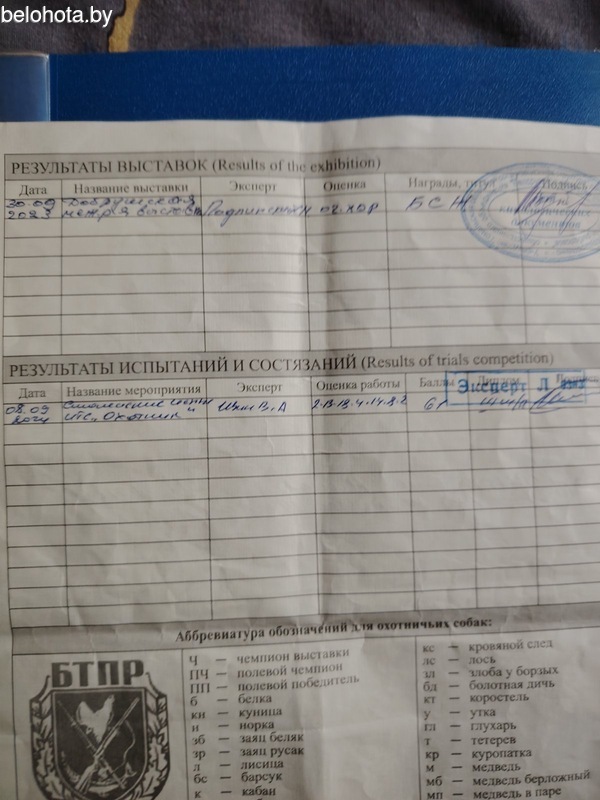 belohota.by
РЕЗУЛЬТАТЫ ВЫСТАВОК (Results of the exhibition)
Дата Название выставки Эксперт Оценка Награды, титул Подпись
30.09 Добрушская
2023 оч.хор БСЖ
кинологических
документов
РЕЗУЛЬТАТЫ ИСПЫТАНИЙ И СОСТЯЗАНИЙ (Results of trials competition)
Дата Название мероприятия Эксперт Оценка работы Баллы
Эксперт
08.09 В.А 61
"Охотник"
Аббревиатура обозначений для охотничьих собак:
БТПР
Ч — чемпион выставки
ПЧ — полевой чемпион
ПП — полевой победитель
б — белка
кн — куница
н — норка
зб — заяц беляк
зр — заяц русак
л — лисица
бс — барсук
к — кабан
кс — кровяной след
лс — лось
зл — злоба у борзых
бл — болотная дичь
кт — коростель
у — утка
гл — глухарь
т — тетерев
кр — куропатка
м — медведь
мб — медведь берложный
мп — медведь в паре